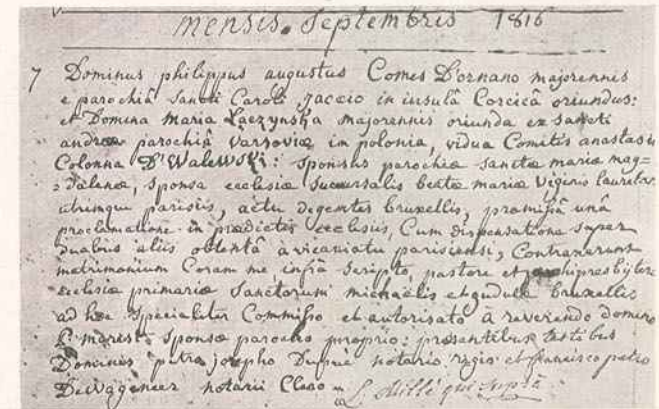 mensis. Septembris 1816
7 Dominus philippus augustus Comes D'ornano majorennis
e parochiâ Sancti Caroli Jaccio in insulâ Corcicâ oriundus:
et Domina Maria Laczynska majorennis oriunda ex sancti
andreæ parochiâ Varsoviæ in polonia, vidua Comitis anastasii
Colonna D'Walewski: sponsus parochiæ sanctæ mariæ mag=
=dalenæ, sponsa ecclesiæ succursalis beatæ mariæ Virginis
utrimque parisiis, actu degentes bruxellis, promissâ unâ
proclamatione in prædictis ecclesiis, Cum dispensatione super
duabus aliis obtentâ à vicariatu parisiensi, Contraxerunt
matrimonium Coram me infrà scripto, pastore et archipresbytero
ecclesiæ primariæ Sanctorum michaëlis et gudulæ bruxellis
ad hoc specialiter Commisso et autorisato à reverendo domino
sponsæ parocho proprio: præsentibus testibus
Dominis petro josepho Dupré notario regio et francisco petro
notarii Cleso = L. Millé qui suprà